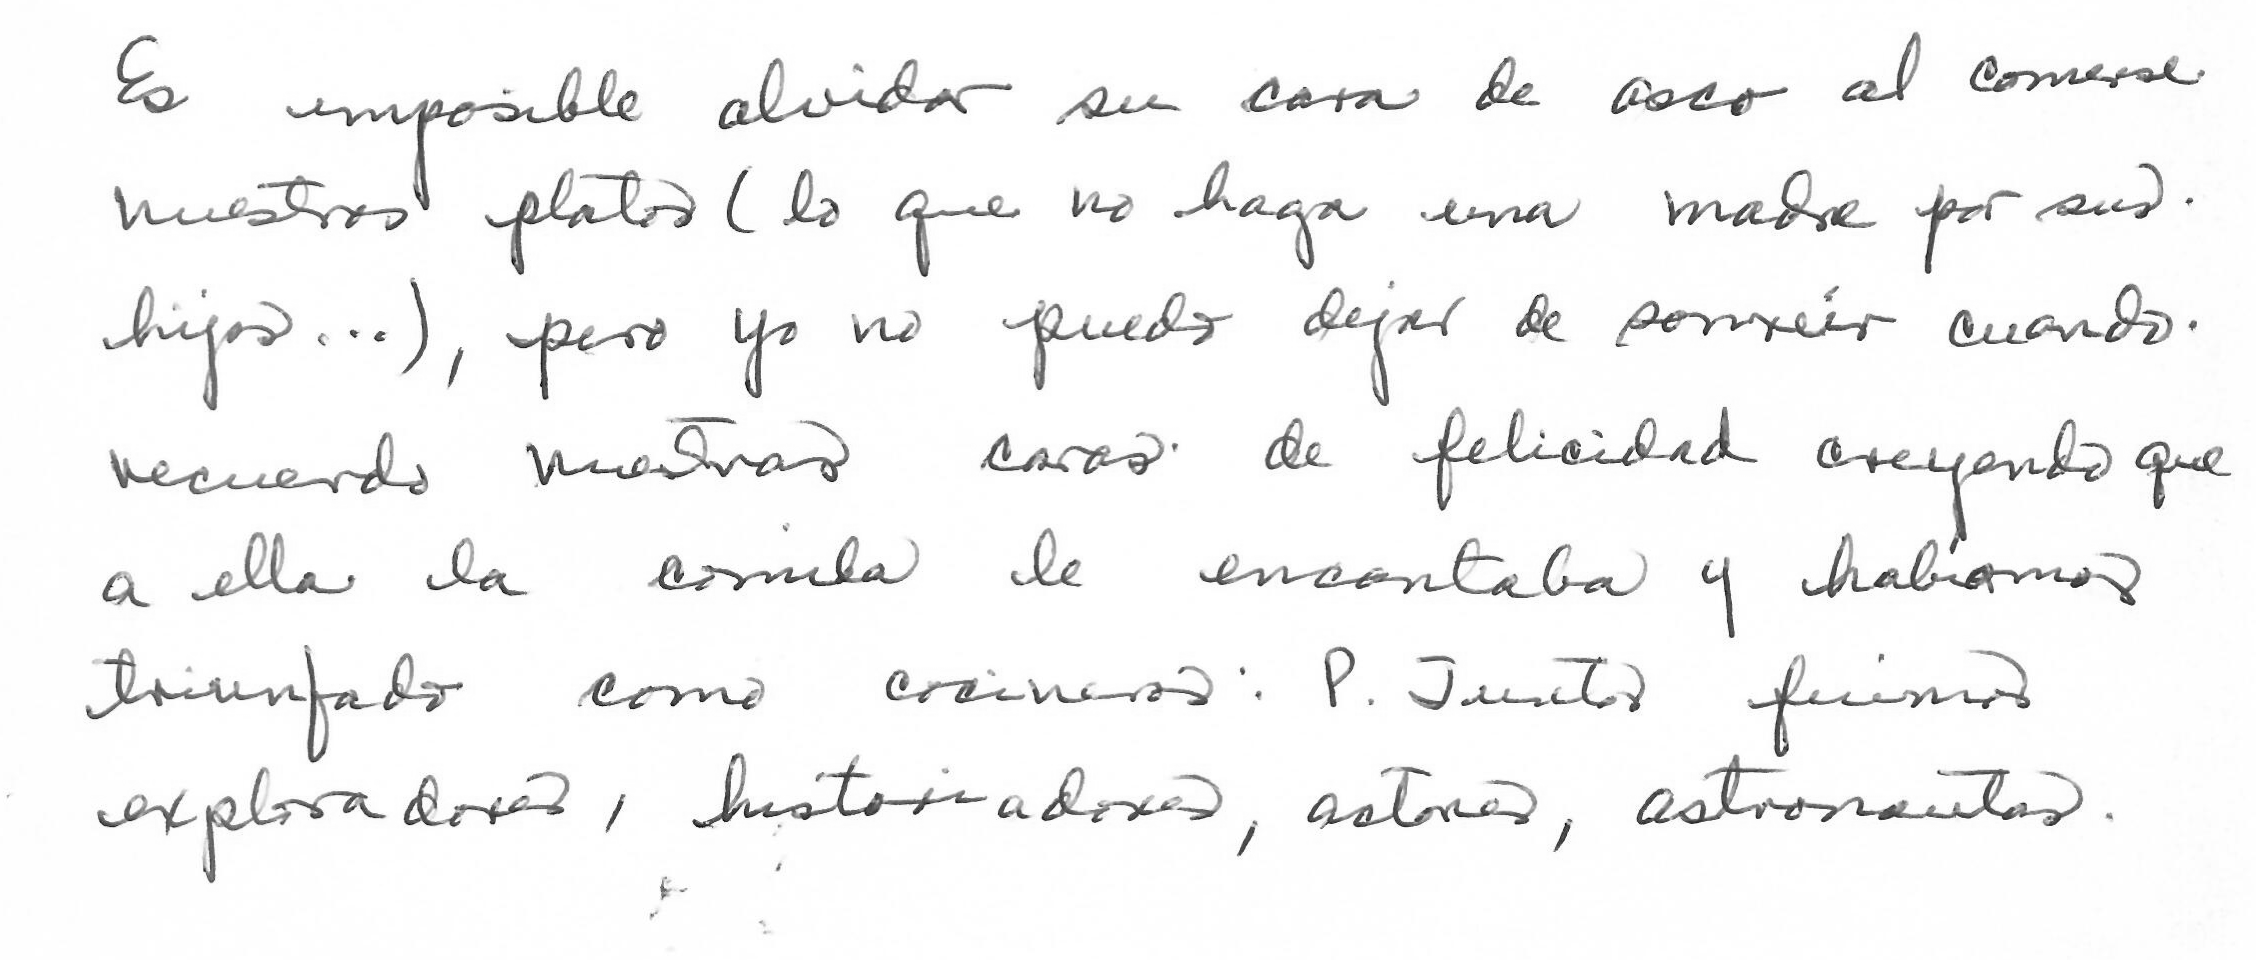 Es imposible olvidar su cara de asco al comerse
nuestros platos (lo que no haga una madre por sus
hijos...), pero yo no puedo dejar de sonreír cuando
recuerdo nuestras caras de felicidad creyendo que
a ella la comida le encantaba y habíamos
triunfado como cocineros: P. Juntos fuimos
exploradores, historiadores, actores, astronautas.